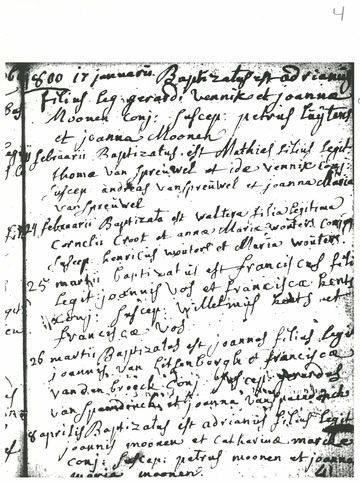 4
1800 17 januarii Baptizatus est adrianus
filius leg: gerardi vennik et joanna
Moonen conj: suscep: petrus luijten
et joanna Moonen
februarii Baptizatus est Mathias filius legit
thoma van spreuwel et ide vennik conj:
suscep andreas van spreuwel et joanna Maria
van spreuwel
24 februarii Baptizata est waltera filia legitima
Cornelis Croot et anna Maria wouters conj
suscep henricus wouters et Maria wouters
25 martii baptizatus est franciscus fili
legit joannis vos et francisca
conj: suscep: willelmus et
francisca vos
26 martii Baptizatus est joannes filius legi
joannis van et francisca
vanden broeck conj suscep:
van et joanna van
8 aprilis Baptizatus est adrianus filius legit
joannis moonen et Catharina
conj: suscep: petrus moonen et joanna
maria moonen